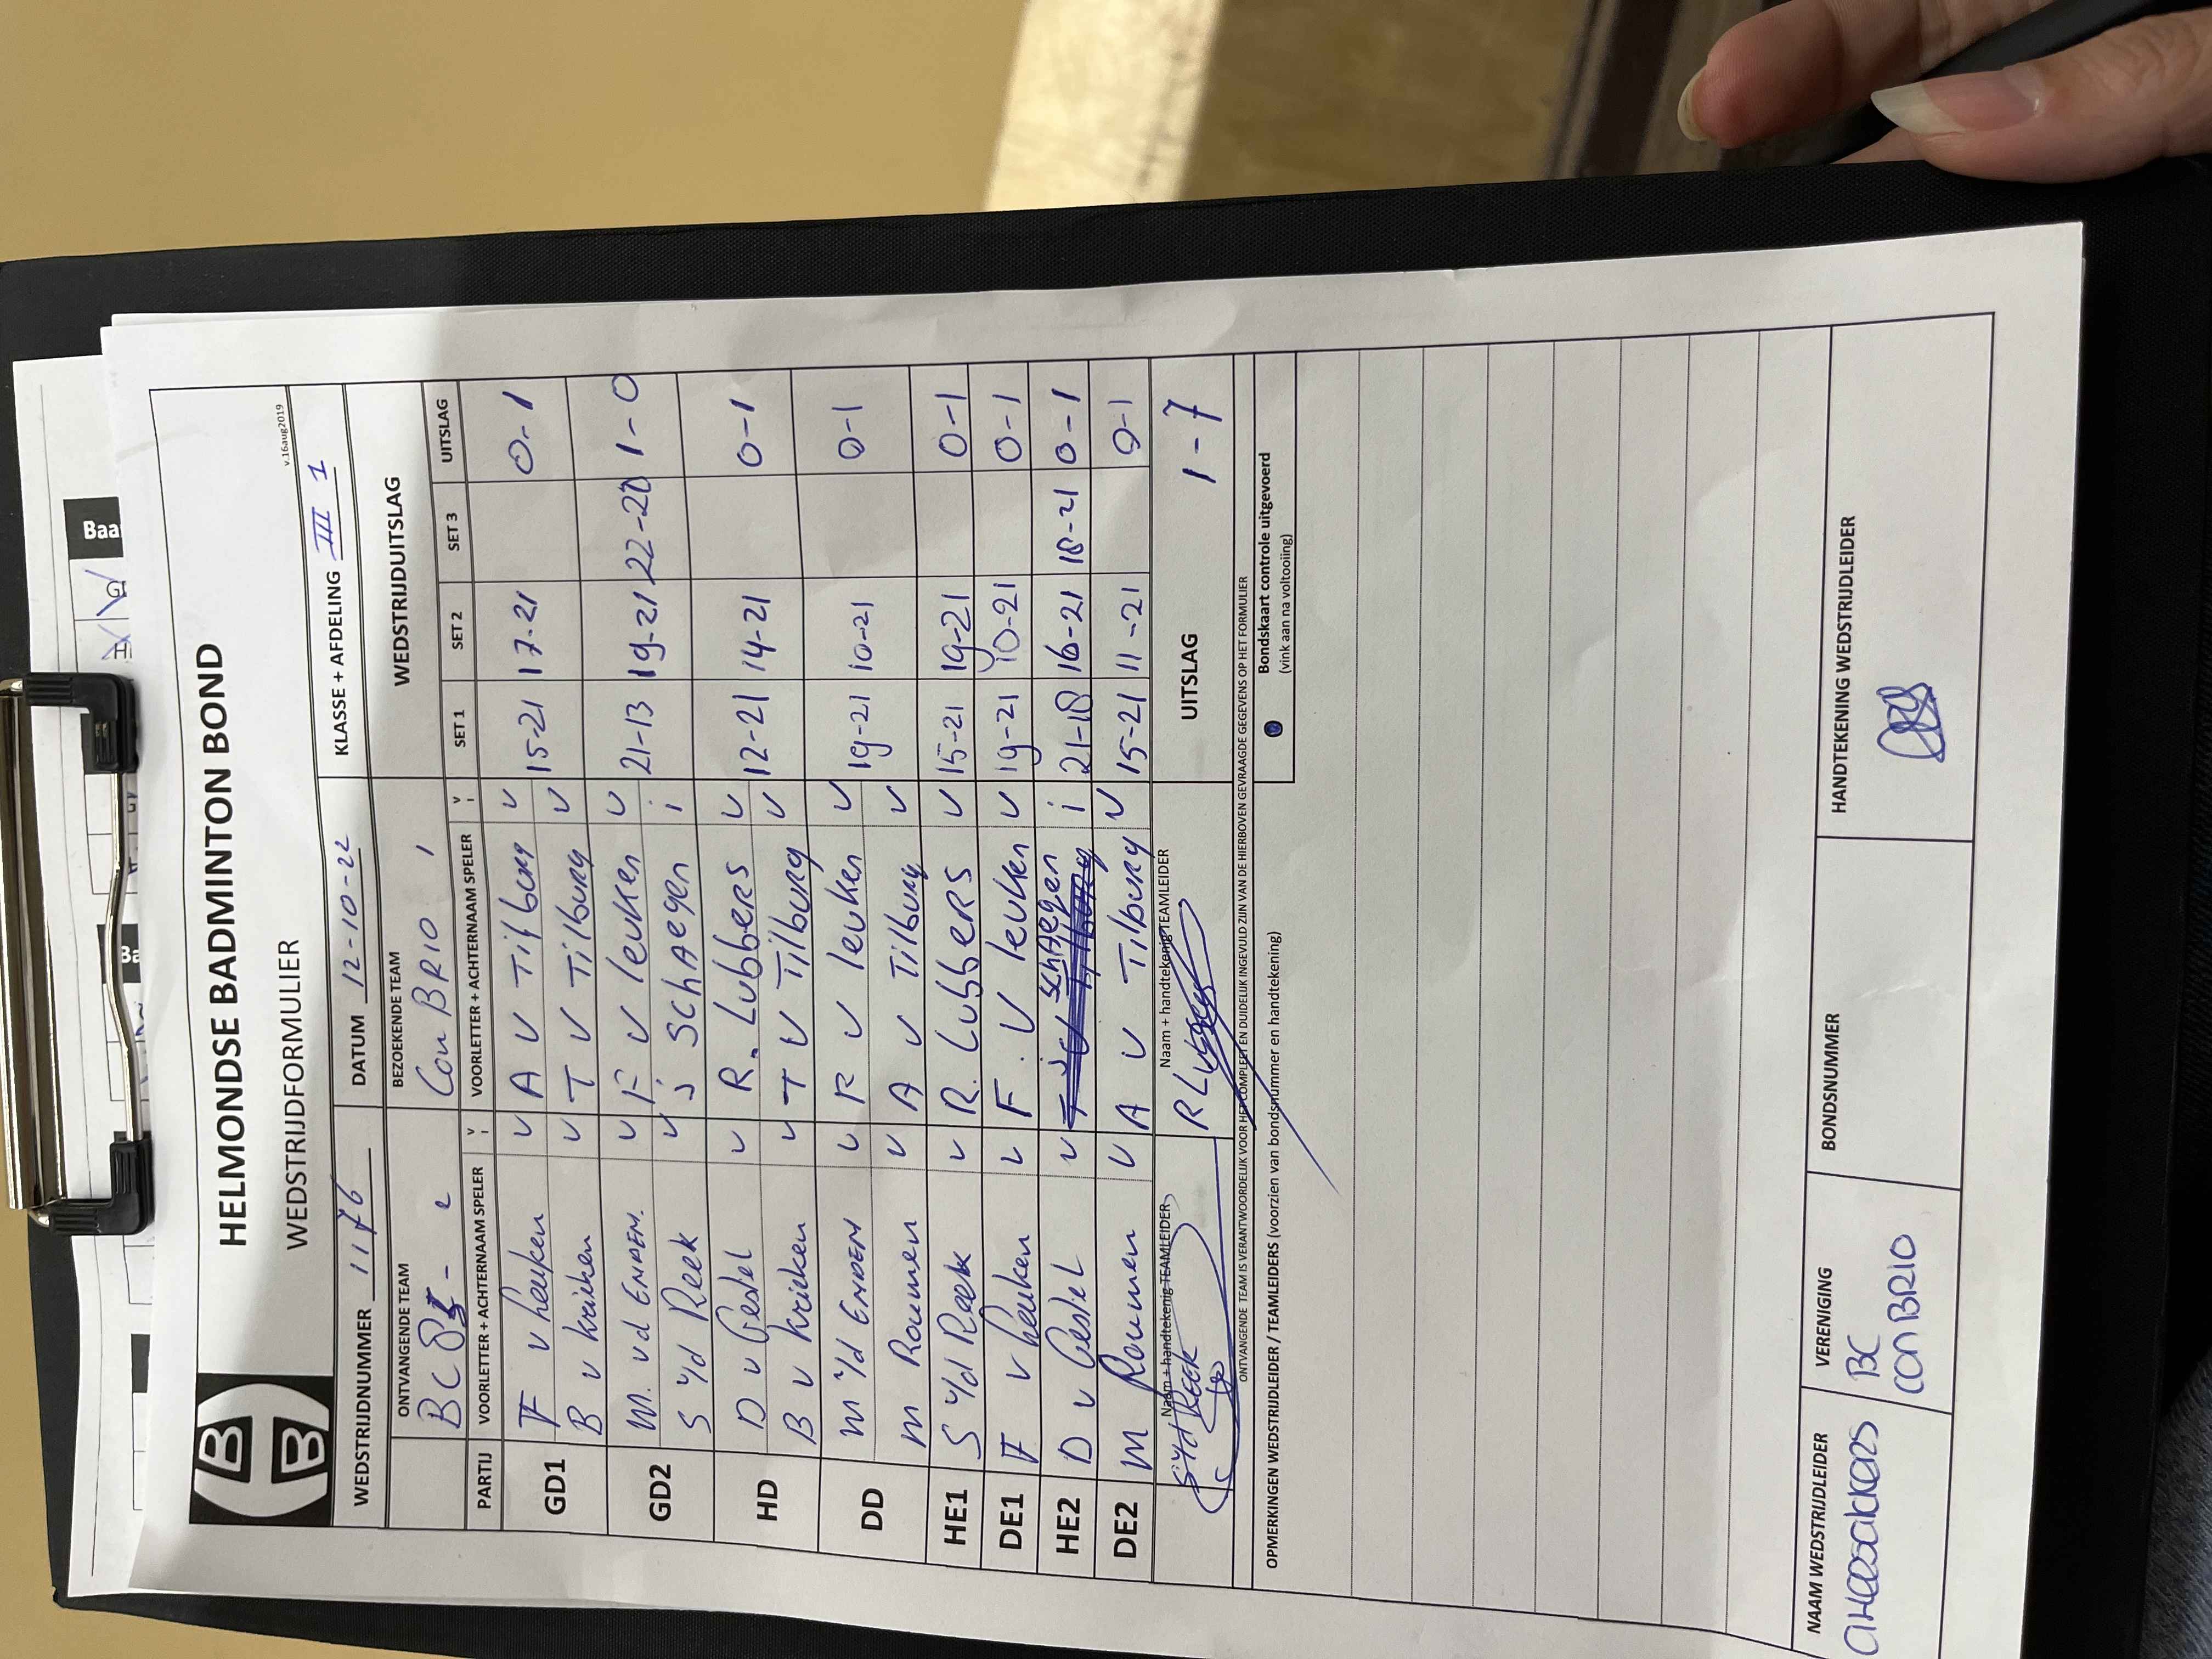 HELMONDSE BADMINTON BOND
WEDSTRIJDFORMULIER
v.16aug2019
WEDSTRIJDNUMMER 1176 DATUM 12-10-22 KLASSE + AFDELING III 1
ONTVANGENDE TEAM BEZOEKENDE TEAM WEDSTRIJDUITSLAG
BC 2 Con BRIO 1
PARTIJ VOORLETTER + ACHTERNAAM SPELER V I VOORLETTER + ACHTERNAAM SPELER V I SET 1 SET 2 SET 3 UITSLAG
GD1 F v heuken v A v Tilburg v 15-21 17-21 0-1
B v krieken v T v Tilburg v
GD2 M. vd ENDEN. v F v leuken v 21-13 19-21 22-20 1-0
S v/d Reek v J SCHAegen i
HD D v Gestel v R. Lubbers v 12-21 14-21 0-1
B v krieken v T v Tilburg v
DD M v/d ENDEN v F v leuken v 19-21 10-21 0-1
M Roumen v A v Tilburg v
HE1 S v/d Reek v R. Lubbers v 15-21 19-21 0-1
DE1 F v heuken v F. v leuken v 19-21 10-21 0-1
HE2 D v Gestel v J SCHAegen i 21-18 16-21 18-21 0-1
DE2 M Roumen v A v Tilburg v 15-21 11-21 0-1
Naam + handtekenig TEAMLEIDER Naam + handtekenig TEAMLEIDER UITSLAG 1-7
S v/d Reek R Lubbers
ONTVANGENDE TEAM IS VERANTWOORDELIJK VOOR HET COMPLEET EN DUIDELIJK INGEVULD ZIJN VAN DE HIERBOVEN GEVRAAGDE GEGEVENS OP HET FORMULIER
OPMERKINGEN WEDSTRIJDLEIDER / TEAMLEIDERS (voorzien van bondsnummer en handtekening)
Bondskaart controle uitgevoerd
(vink aan na voltooiing)
NAAM WEDSTRIJDLEIDER VERENIGING BONDSNUMMER HANDTEKENING WEDSTRIJDLEIDER
BC
CONBRIO
Baa
Ba